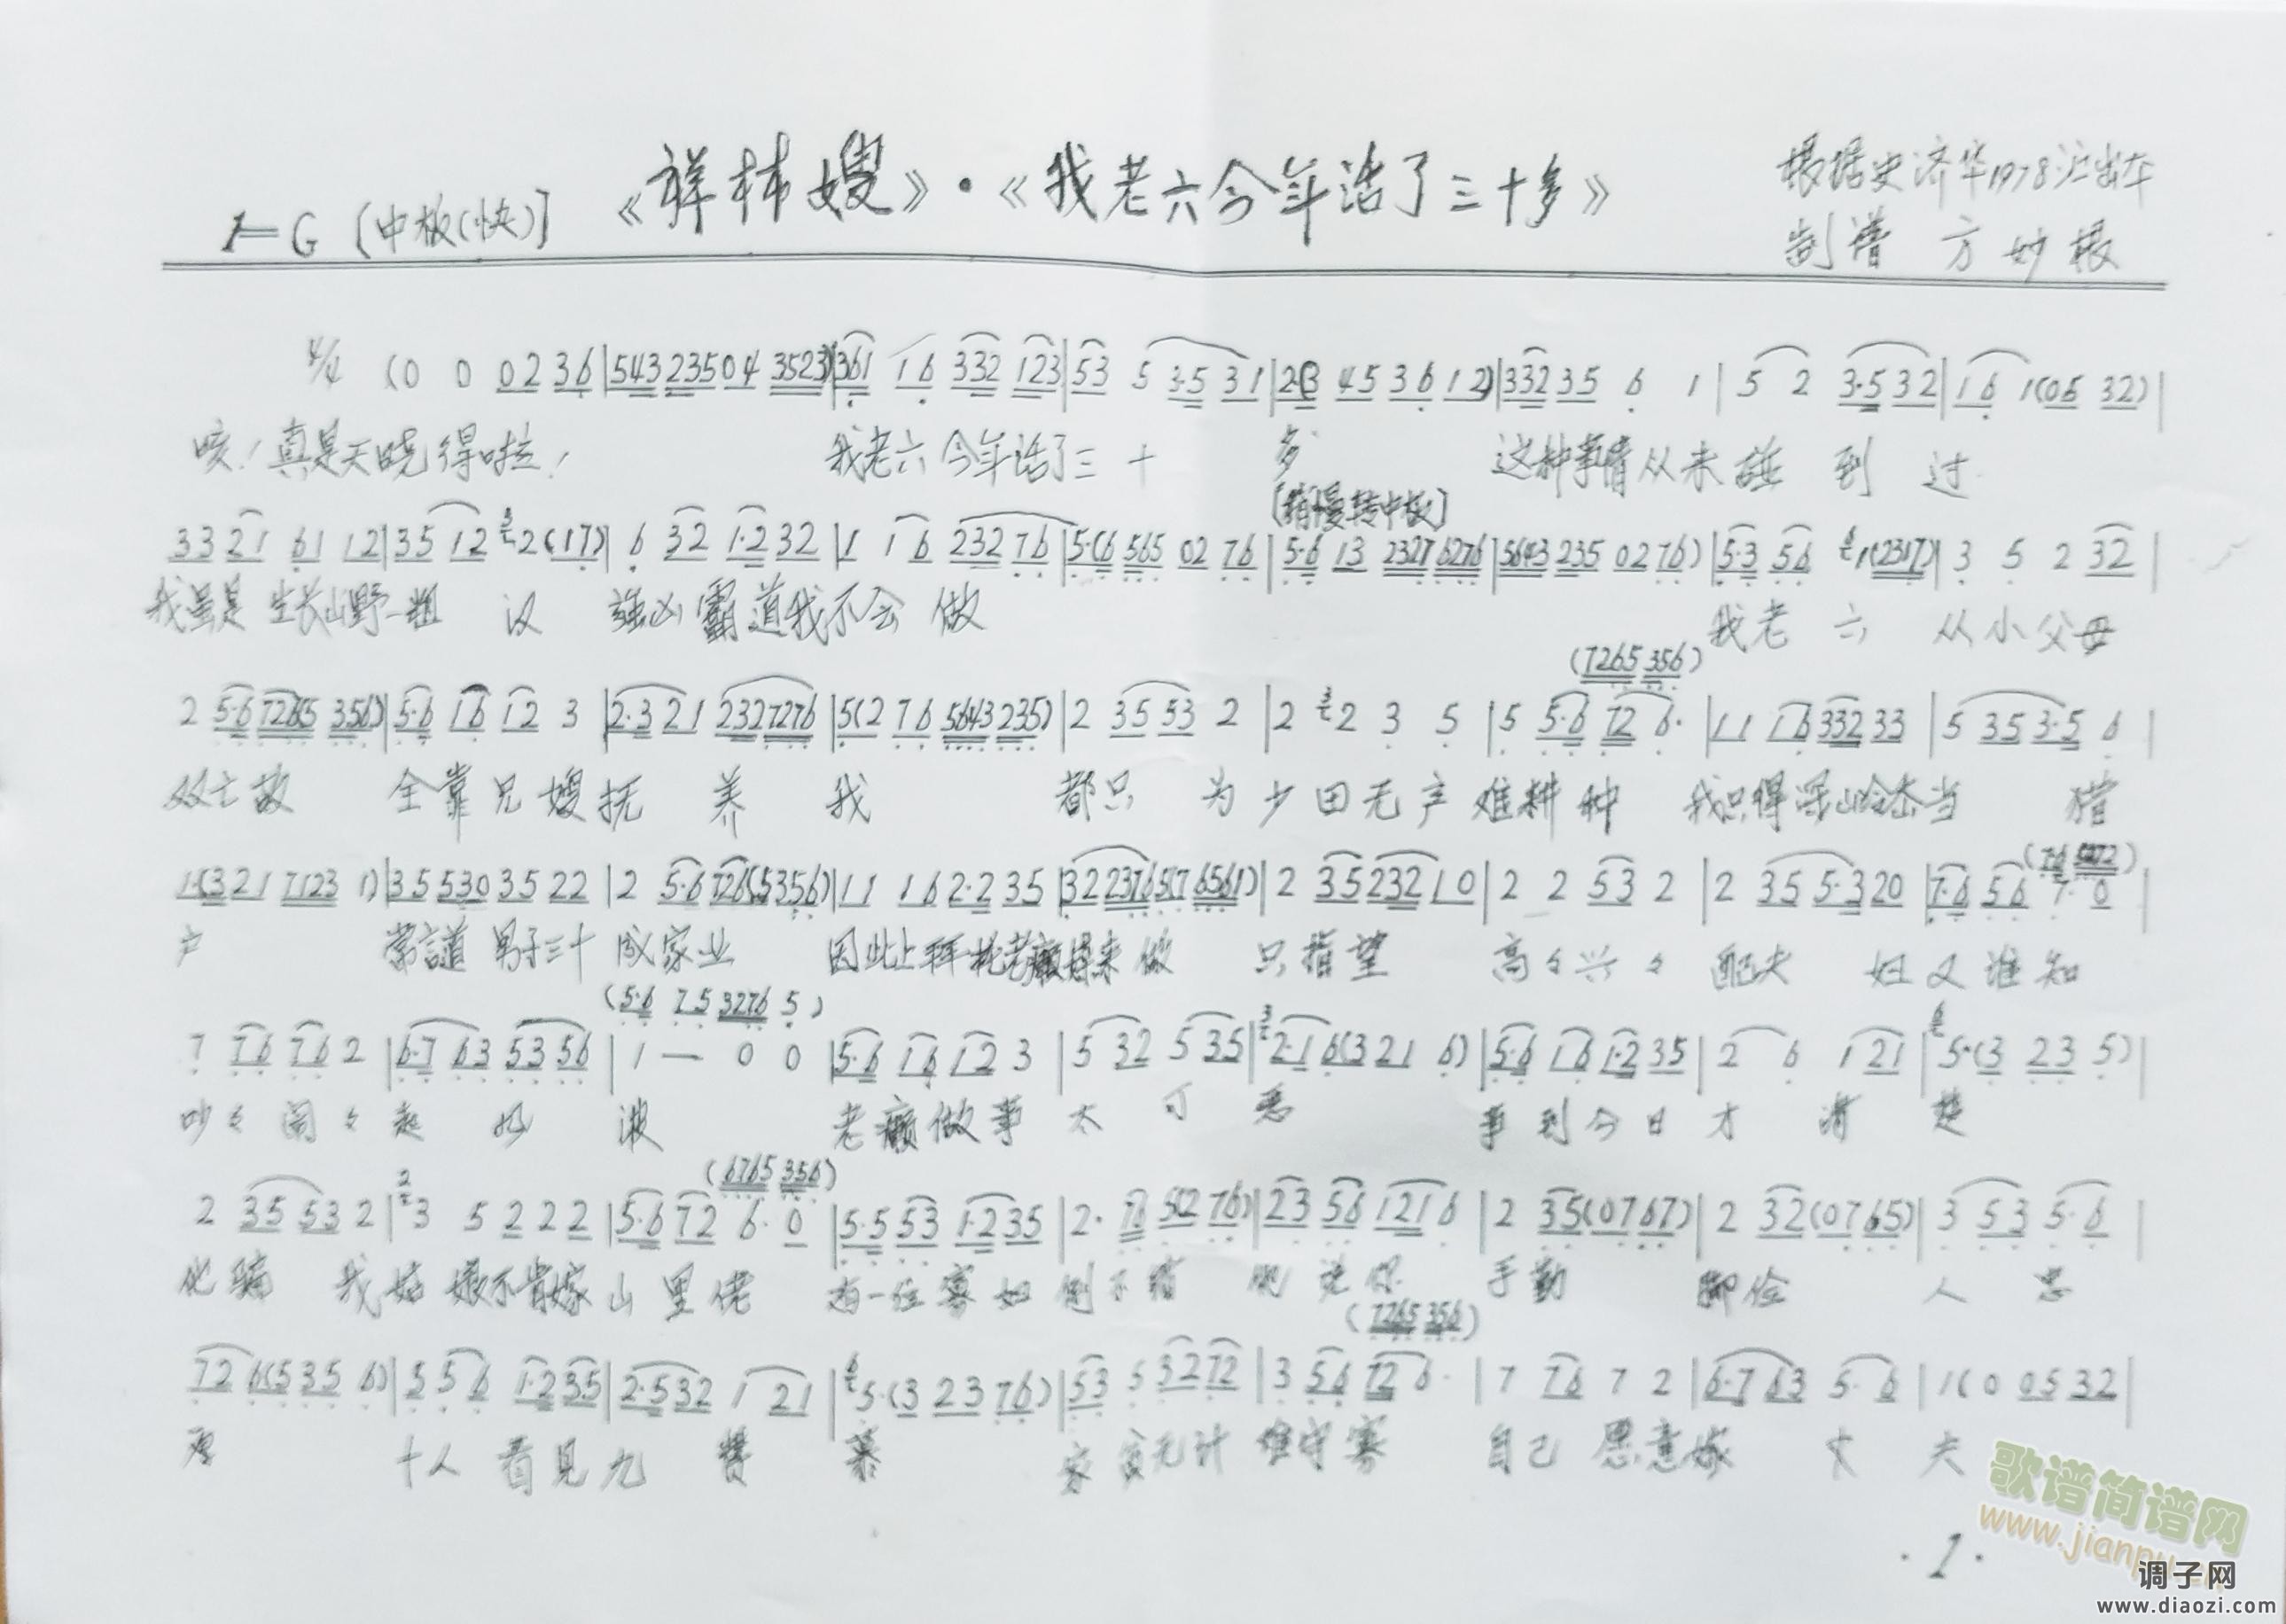 《祥林嫂》·《我老六今年活了三十多》
根据史济华1978演出本
1=G [中板(快)]
制谱 方妙根
4/4 (0 0 02 36 | 543 235 04 3523) | 361 16 332 123 | 53 5 3·5 31 | 2·(3 45 36 12) | 332 35 6 1 | 5 2 3·5 32 | 16 1(05 32) |
咳！真是天晓得啦！ 我老六今年活了三十 多 这种事情从未碰到过
[稍慢转中板]
33 21 61 12 | 35 12 2(17) | 6 32 1·2 32 | 1 16 232 76 | 5·(6 565 02 76 | 5·6 13 2327 6276 | 5643 235 02 76) | 5·3 56 1(2317) | 3 5 2 32 |
我虽是生长山野一粗 汉 强凶霸道我不会 做 我老六 从小父母
(7265 356)
2 5·6 7265 356) | 5·6 16 12 3 | 2·3 21 232 7276 | 5(2 76 5643 235) | 2 35 53 2 | 2 2 3 5 | 5 5·6 72 6· | 11 16 332 33 | 5 35 3·5 6 |
双亡故 全靠兄嫂抚 养 我 都只 为少田无产难耕种 我只得深山冷岙当 猎
(76 5272)
1·(3 21 7123 1) | 35 530 35 22 | 2 5·6 726(5356) | 11 16 2·2 35 | 32 2376 5(76561) | 2 35 232 10 | 2 2 53 2 | 2 35 5·3 20 | 7·6 56 7· 0 |
户 常言道男子三十成家业 因此上拜托老癞媒来做 只指望 高々兴々 配夫 妇又谁知
(5·6 75 3276 5)
7 76 76 2 | 6·7 63 53 56 | 1 — 0 0 | 5·6 16 12 3 | 5 32 5 35 | 2·1 6(321 6) | 5·6 16 1·2 35 | 2 6 1 21 | 5·(3 23 5) |
吵々闹々起 风 波 老癞做事太 可 恶 事到今日才 清 楚
(6765 356)
2 35 53 2 | 3 5 2 2 2 | 5·6 72 6· 0 | 5·5 53 1·2 35 | 2· 76 5(2 76) | 23 56 121 6 | 2 35(0767) | 2 32(0765) | 3 53 5·6 |
他骗 我姑娘不肯嫁山里佬 有一位寡妇倒不错 她说你 手勤 脚俭 人 忠
(7265 356)
72 6(535 6) | 5 56 1·2 35 | 2·5 32 1 21 | 5·(3 23 76) | 53 5 32 72 | 3 56 72 6· | 7 76 7 2 | 6·7 63 5·6 | 1(0 05 32 |
厚 十人看见九 赞 慕 家贫无计难守寡 自己愿意嫁 丈 夫
歌谱简谱网
·1·
调子网
www.diaozi.com